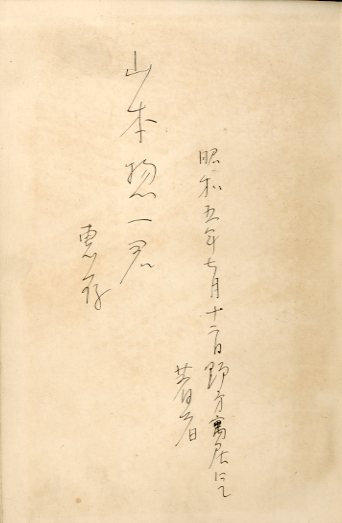 昭和五年七月十二日野方寓居にて
著者
山本惣一君
恵存